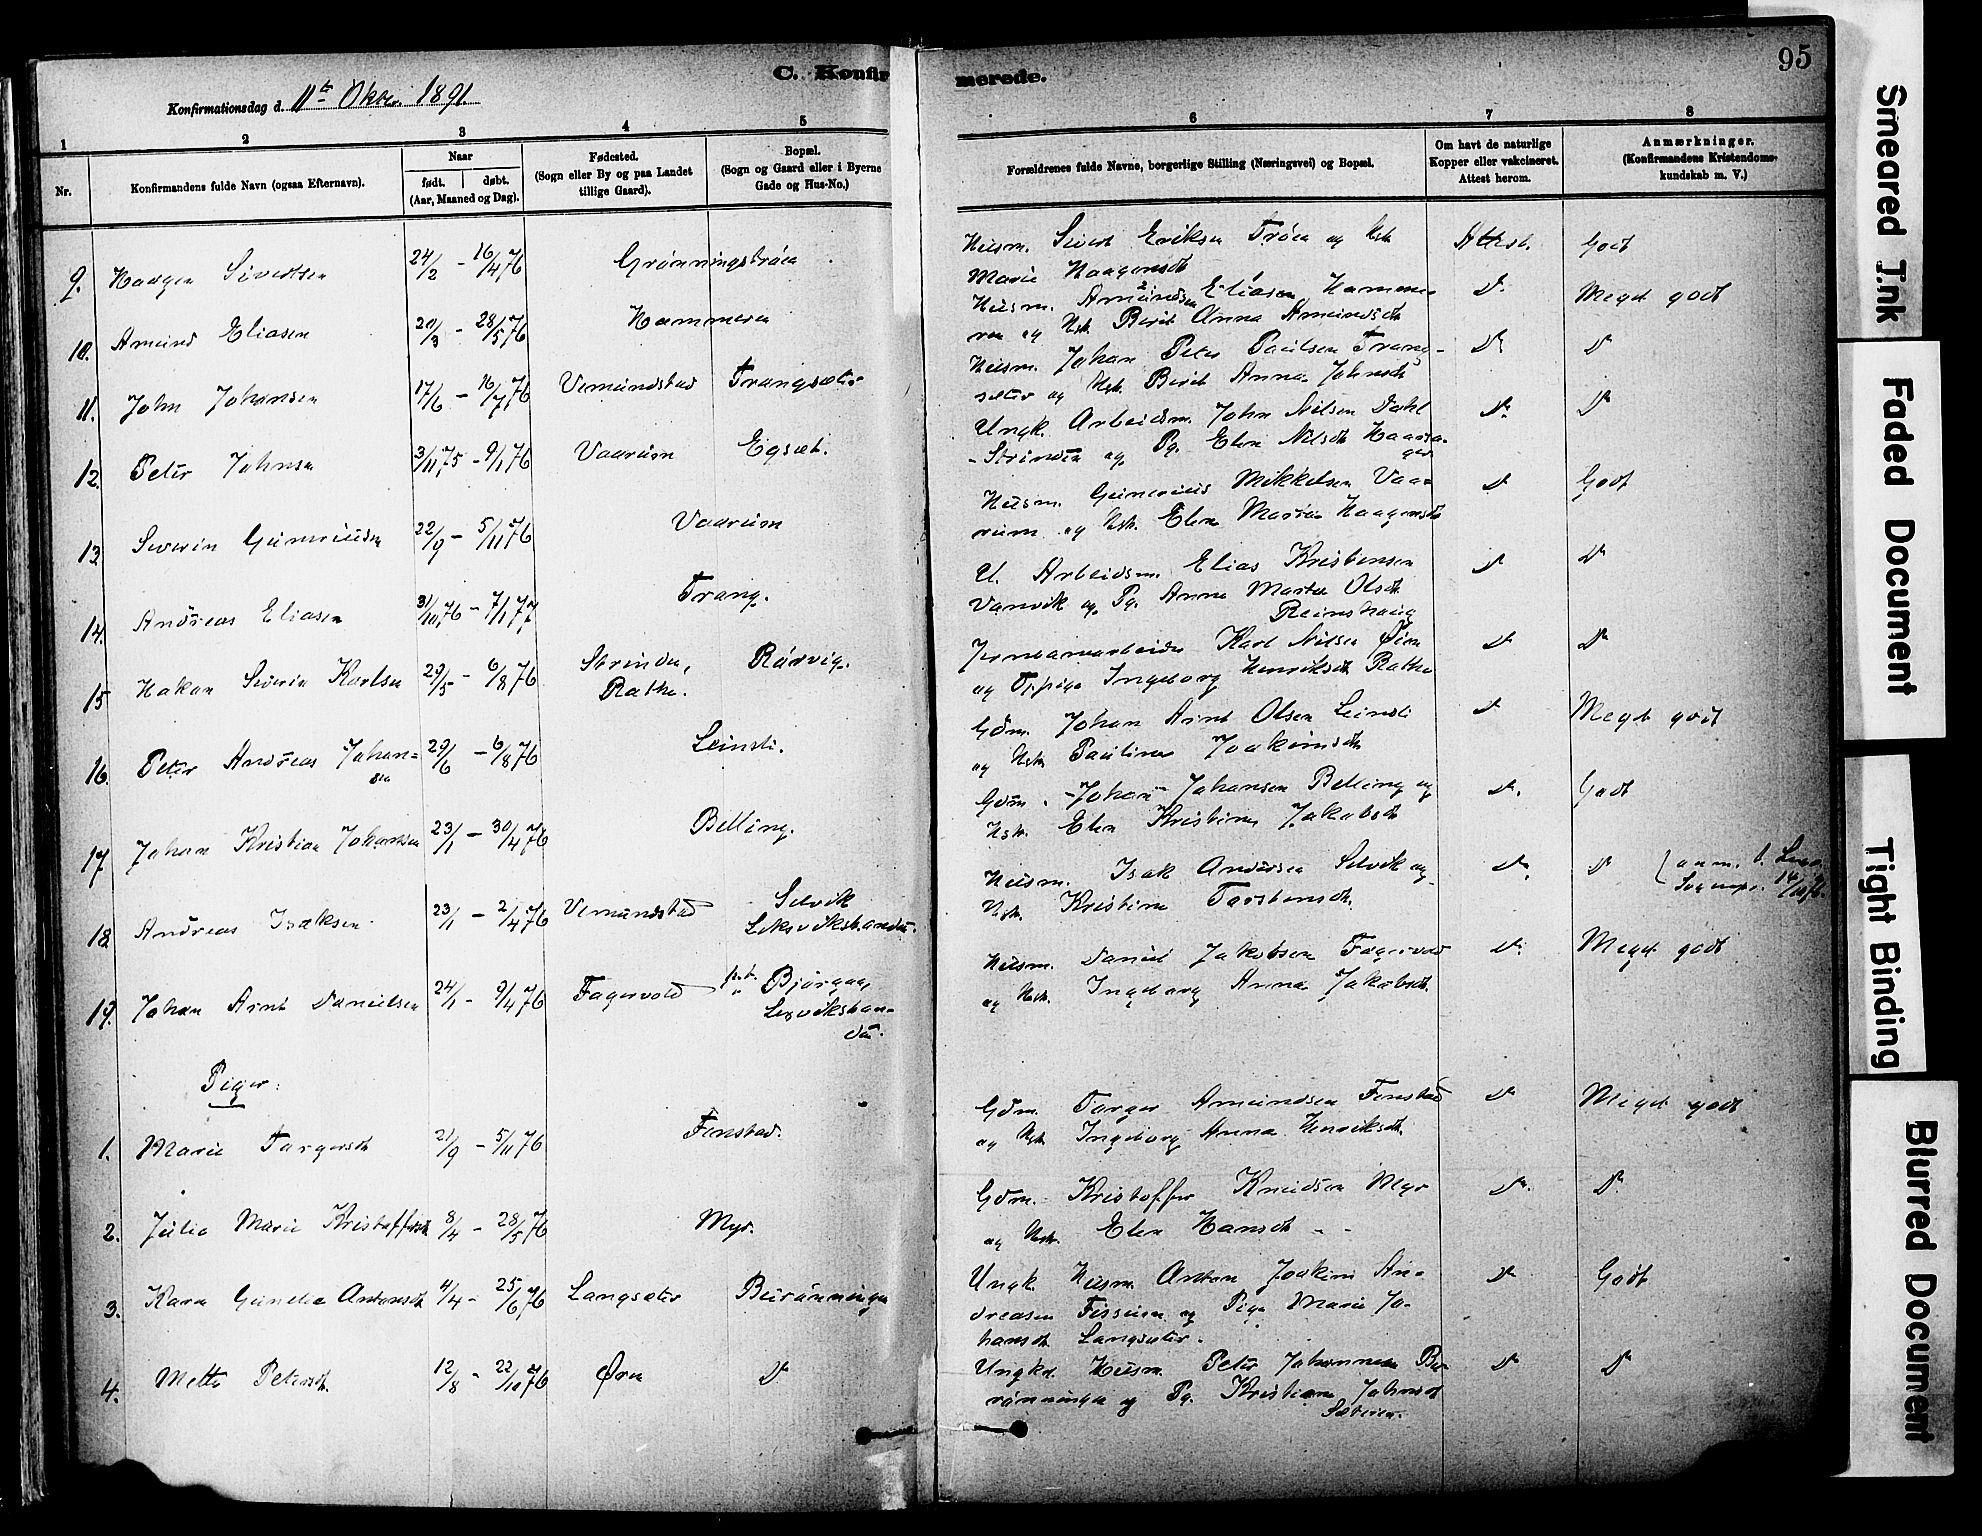 95
C. Konfirmerede.
Konfirmationsdag d. 11te Oktbr. 1891.
1 2 3 4 5 6 7 8
Nr.
Konfirmandens fulde Navn (ogsaa Efternavn).
Naar
født. døbt.
(Aar, Maaned og Dag).
Fødested.
(Sogn eller By og paa Landet
tillige Gaard).
Bopæl.
(Sogn og Gaard eller i Byerne
Gade og Hus-No.)
Forældrenes fulde Navne, borgerlige Stilling (Næringsvei) og Bopæl.
Om havt de naturlige
Kopper eller vakcineret.
Attest herom.
Anmærkninger.
(Konfirmandens Kristendoms-
kundskab m. V.)
9. Haagen Sivertsen 24/2 - 16/4 76 Grønningstrøen
Husm. Sivert Eriksen Trøen og Hst. Attest. Godt
Marie Haagensdt
10. Amund Eliasen 20/3 - 28/5 76 Hammeren
Husm. Amundsen Eliasen Hamme- Do Meget godt
ren og Hst. Berit Anna Amundsdt
11. John Johansen 17/6 - 16/7 76 Vemundstad Trangsæter
Husm. Johan Peter Paulsen Trang- Do Do
sæter og Hst. Berit Anna Johnsdt
12. Peter Johnsen 3/11 75 - 9/1 76 Vaarum Egsæt.
Ungk. Arbeidsm. John Nilsen Dahl Do Do
-Strinden og Pg. Elen Nilsdt
13. Severin Guneriusen 22/9 - 5/11 76 Vaarum
Husm. Gunerius Mikkelsen Vaa- Do Godt
rum og Hst. Elen Marta Haagensdt
14. Andreas Eliasen 31/10 76 - 7/1 77 Trang.
U. Arbeidsm. Elias Kristensen Do Do
Vanvik og Pg. Anne Marta Olsdt
Reinshaug
15 Hakon Severin Karlsen 29/5 - 6/8 76 Strinden, Rathe. Rørvig.
Jernbanearbeider Karl Nilsen Øien Do Do
og Ingeborg Henriksdt Rathe
16. Peter Andreas Johan=
sen 29/6 - 6/8 76 Leinsli.
Gdm. Johan Arnt Olsen Leinsli Do Meget godt
og Hst. Pauline Joakimsdt
17. Johan Kristian Johansen 23/1 - 30/4 76 Belling.
Gdm. Johan Johansen Belling og Do Godt
Hst. Elen Kristine Jakobsdt
18. Andreas Isaksen 23/1 - 2/4 76 Vemundstad Selvik
Leksvikstranden.
Husm. Isak Andersen Selvik og Do Do
Hst. Kristine Torstensdt.
19. Johan Arnt Danielsen 24/1 - 9/4 76 Fagervold p.t. Bjørgaa,
Lexvikstran-
den.
Husm. Daniel Jakobsen Fagervold Do Meget godt
og Hst. Ingeborg Anna Jakobsdt.
Piger:
1. Marie Torgersdt 21/9 - 5/11 76 Finstad.
Gdm. Torger Amundsen Finstad Do Meget godt
og Hst. Ingeborg Anna Henriksdt.
2. Julie Marie Kristoffersdt 8/4 - 28/5 76 Myr.
Gdm. Kristoffer Knudsen Myr Do Do
og Hst. Elen Hansdt - -
3. Karen Gunelie Antonsdt 4/4 - 25/6 76 Langsæter Burønningen
Ungk. Husm. Anton Joakim An- Do Godt
dreasen og Pige Marie Jo-
hansdt Langsæter.
4. Mette Petersdt. 12/8 - 22/10 76 Øren Do
Ungk. Husm. Peter Johannesen Bu- Do Do
rønningen og Pg. Kristiane Johnsdt
Sæteren.
Smeared Ink
Faded Document
Tight Binding
Blurred Document